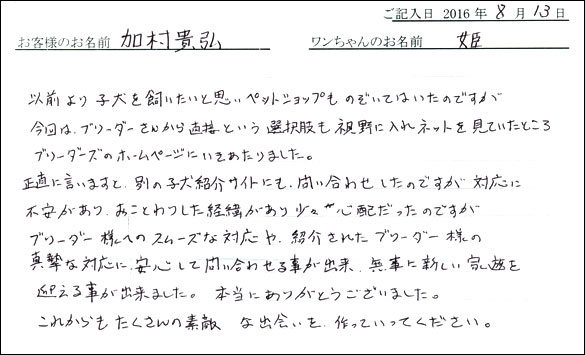 ご記入日 2016 年 8 月 13 日
お客様のお名前 加村貴弘 ワンちゃんのお名前 姫
以前より子犬を飼いたいと思いペットショップものぞいてはいたのですが
今回は、ブリーダーさんから直接という選択肢も視野に入れネットを見ていたところ
ブリーダーズのホームページにいきあたりました。
正直に言いますと、別の子犬紹介サイトにも、問い合わせしたのですが対応に
不安があり、おことわりした経緯があり少々心配だったのですが
ブリーダー様へのスムーズな対応や、紹介されたブリーダー様の
真摯な対応に、安心して問い合わせる事が出来、無事に新しい家族を
迎える事が出来ました。本当にありがとうございました。
これからもたくさんの素敵な出会いを、作っていってください。